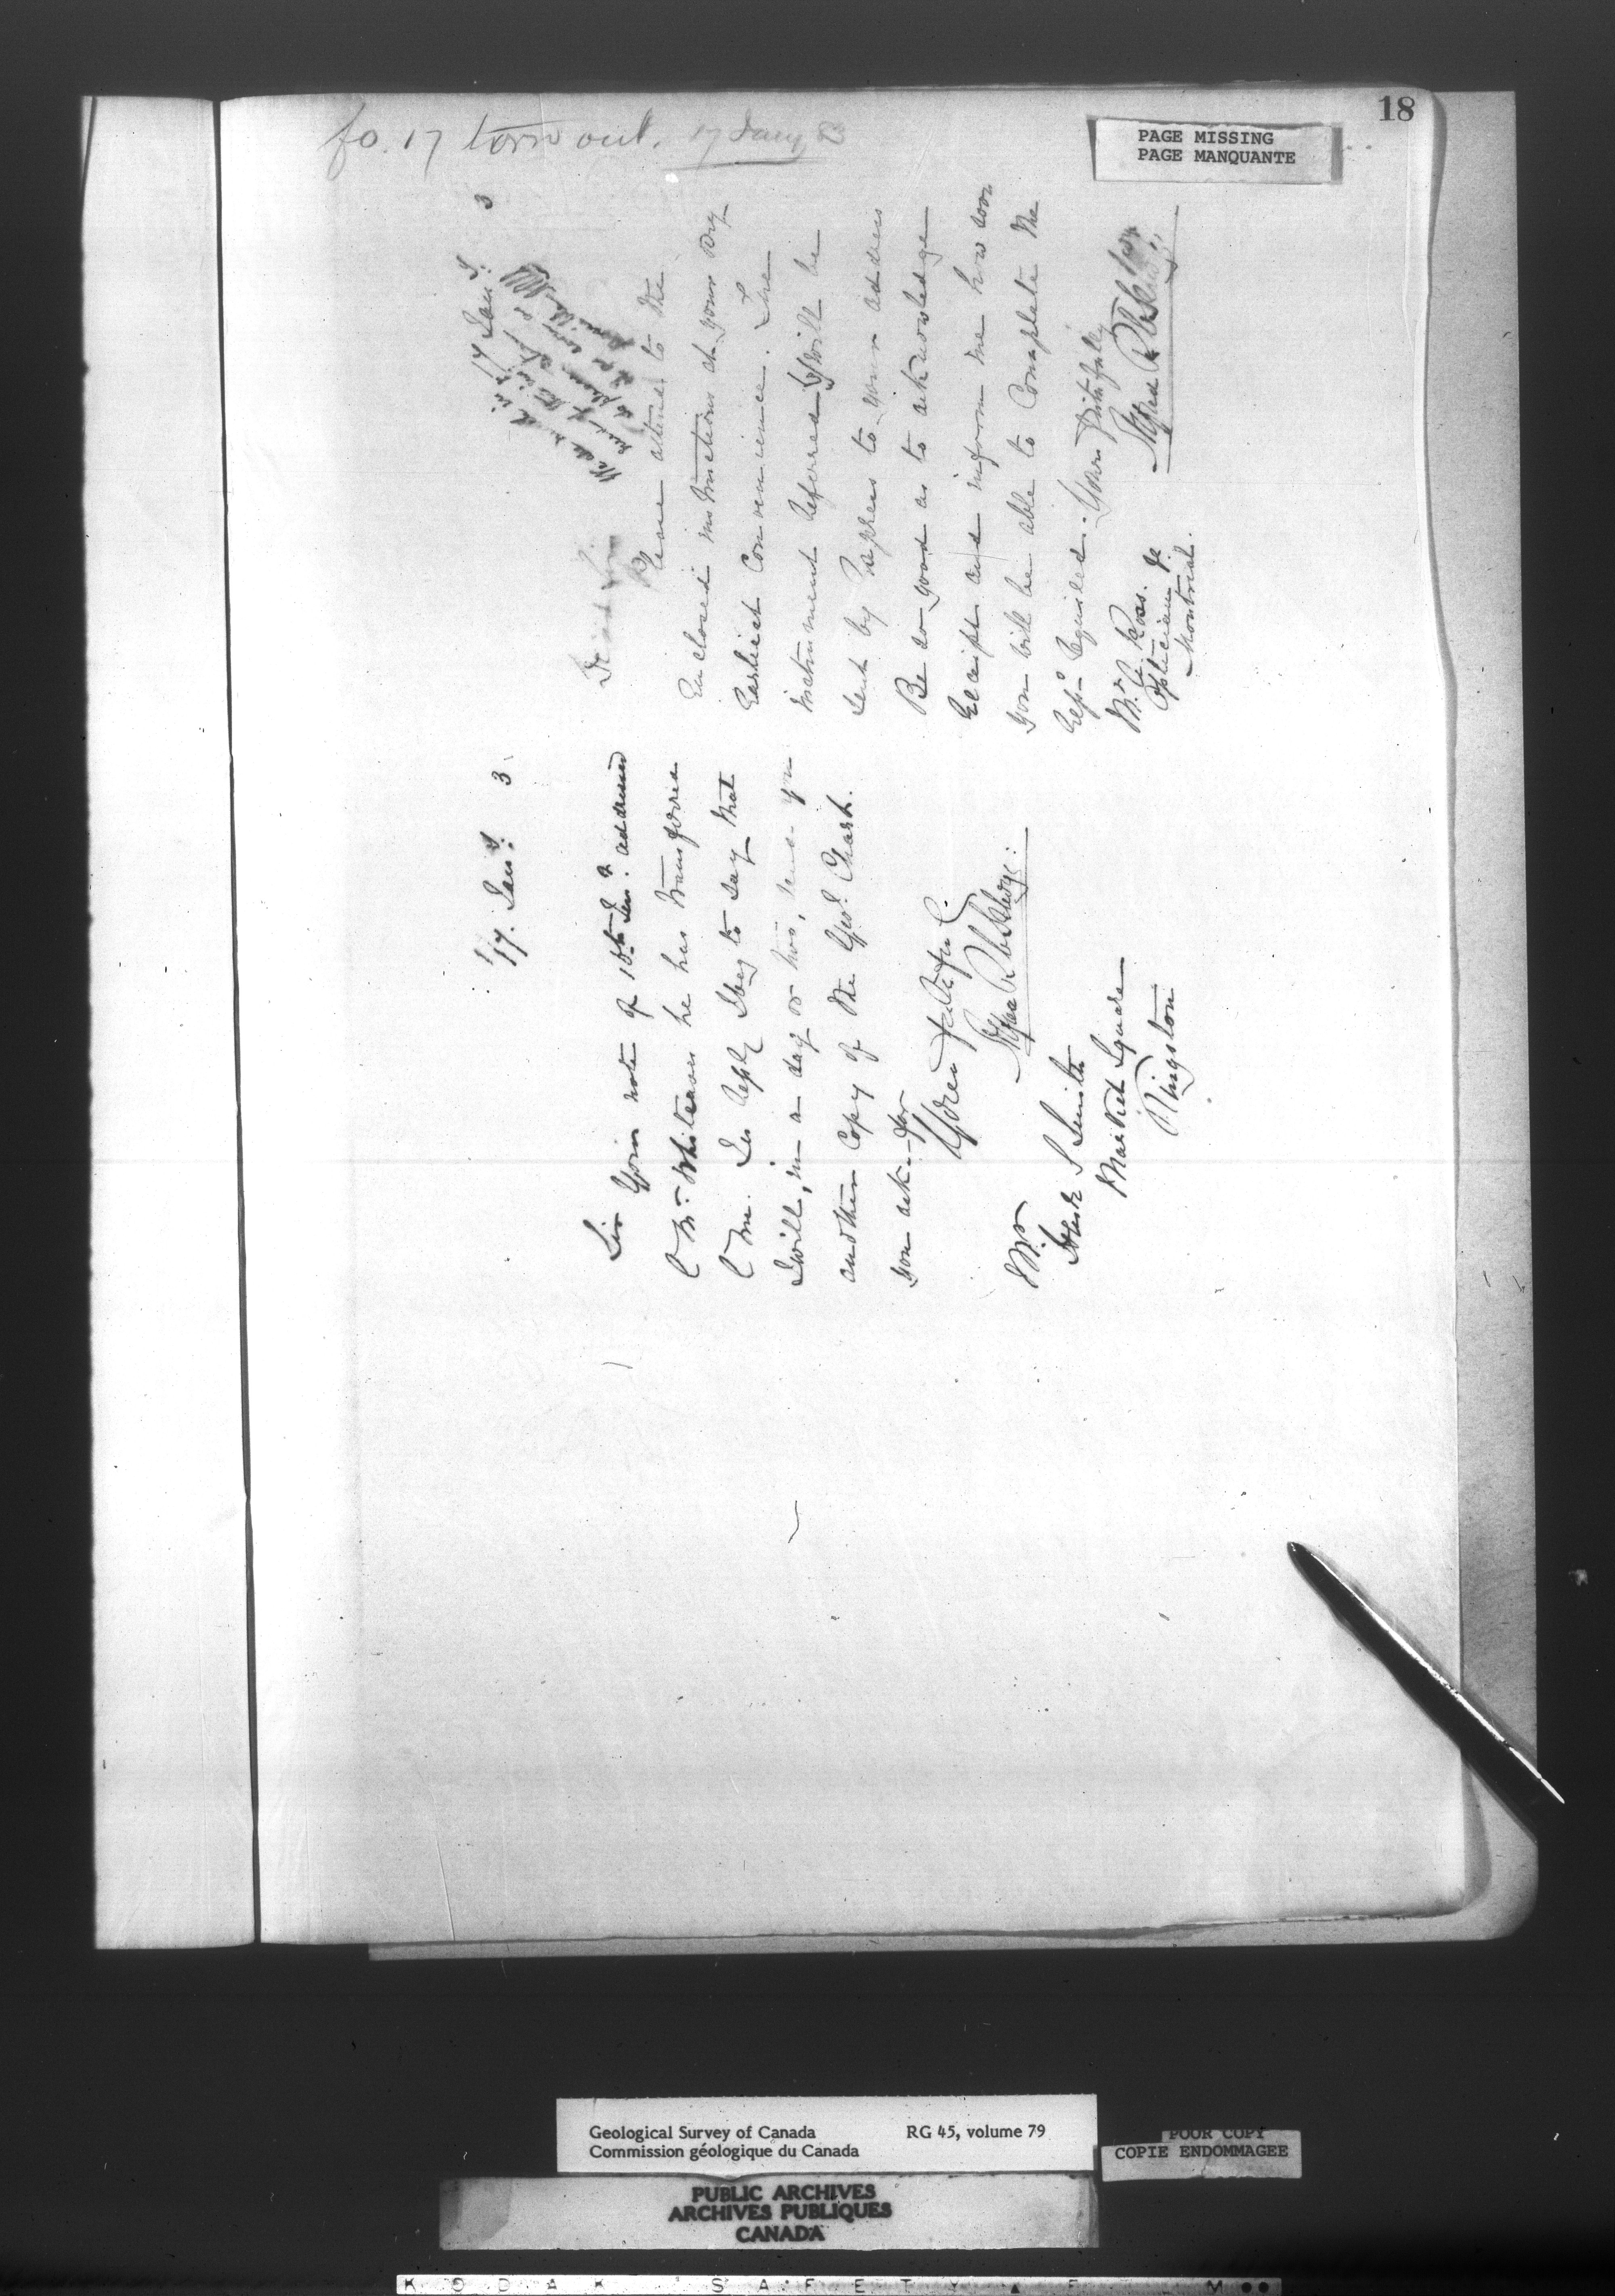 18
PAGE MISSING
PAGE MANQUANTE
fo. 17 torn out. 17 Jany 83
17. Jany. 3
Sir Your note of 15th Inst. addressed
to Mr. Whiteaves he has transferred
to me. In reply I beg to say that
I will, in a day or two, send you
another copy of the Geol. Chart.
you ask for
Yours faithful
Alfred R C Selwyn
Mr
S Smith
Market Square
Kingston
17 Jany 3
Dear Sir
Please attend to the
Enclosed instructions at your very
Earliest Convenience. The
instrument referred will be
sent by Express to your address
Be so good as to acknowledge
Receipt and inform me how soon
you will be able to Complete the
Required. Yours faithfully
Alfred R C Selwyn
Mr. Ross.
Optician &c
Montreal.
Geological Survey of Canada RG 45, volume 79
Commission géologique du Canada
POOR COPY
COPIE ENDOMMAGEE
PUBLIC ARCHIVES
ARCHIVES PUBLIQUES
CANADA
KODAK SAFETY FILM